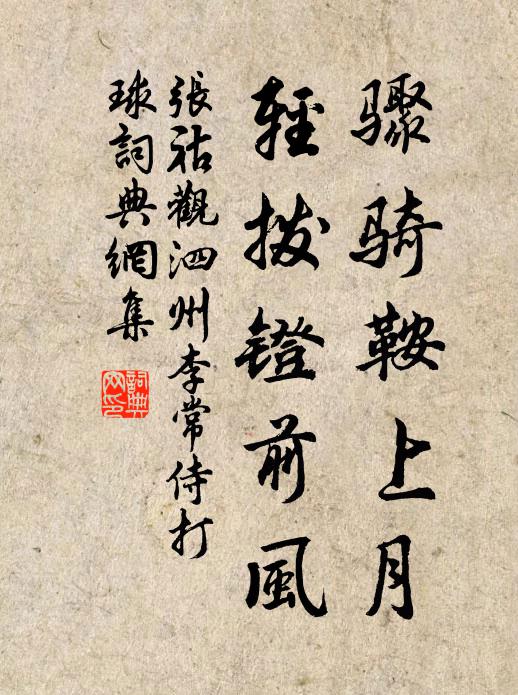 驟騎鞍上月
輕撥鐙前風
張祜觀泗州李常侍打
球詞典網集
詞典
网印